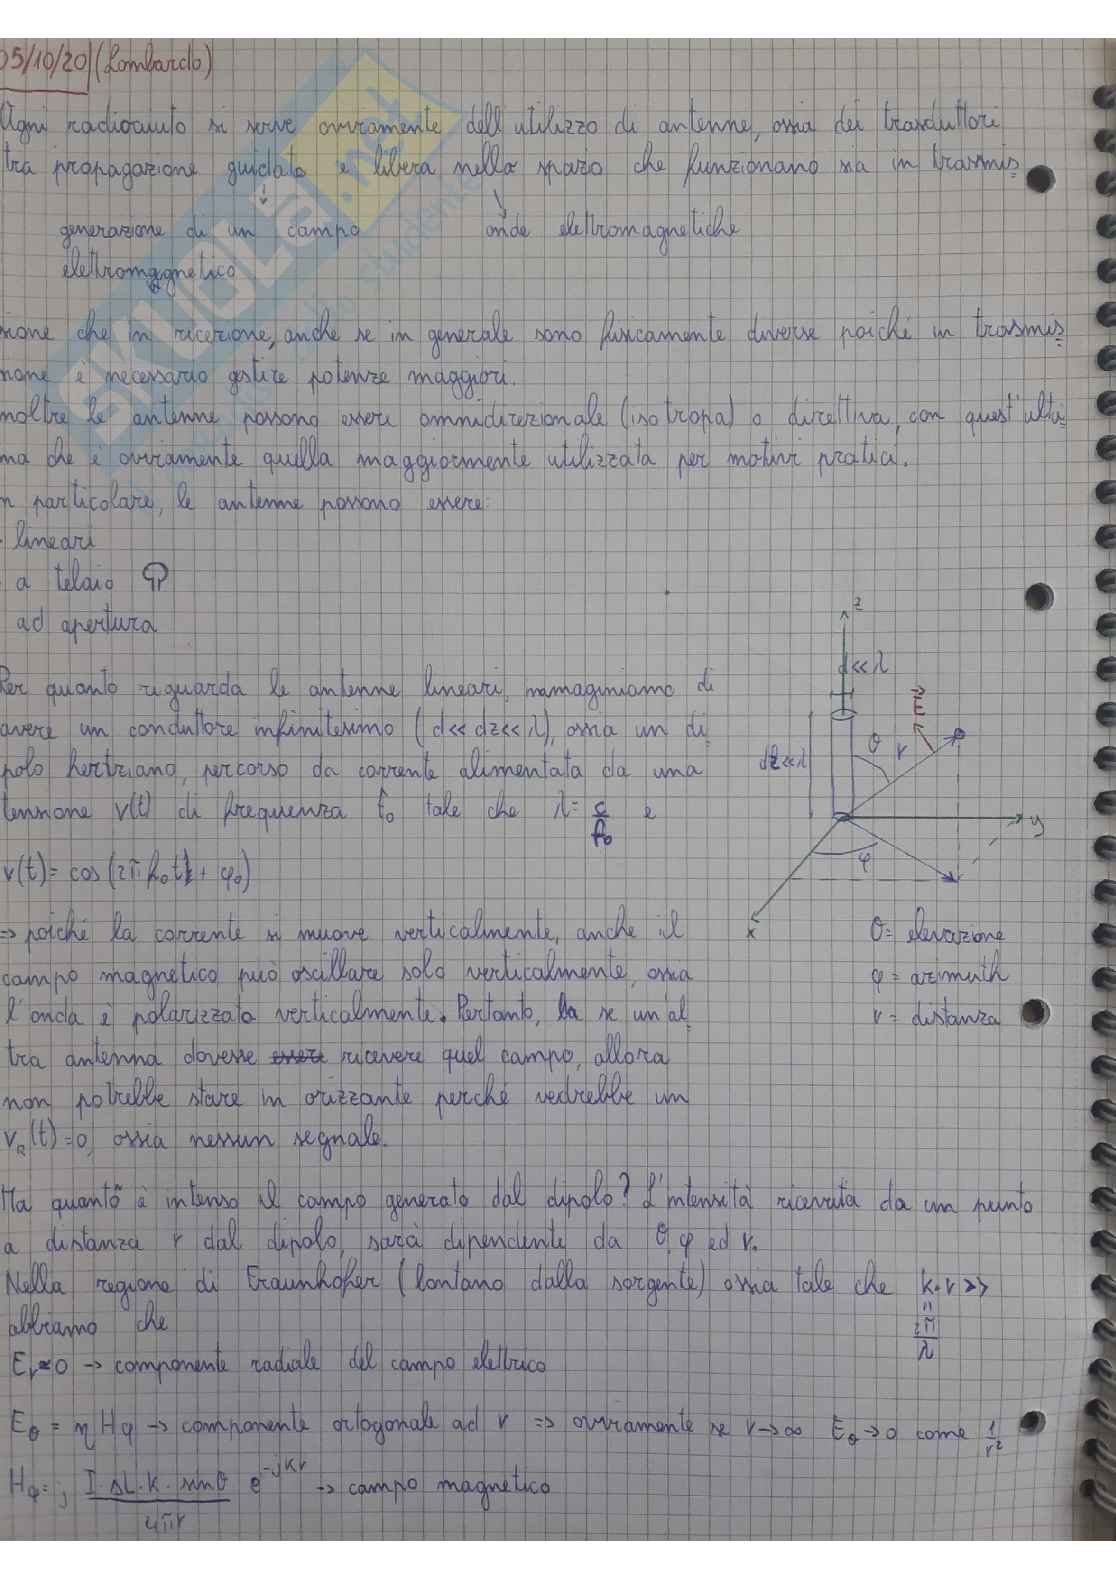 05/10/20 (Lombardo)
Ogni radioaiuto si serve ovviamente dell'utilizzo di antenne, ossia dei trasduttori
tra propagazione guidata e libera nello spazio che funzionano sia in trasmis=
generazione di un campo onde elettromagnetiche
elettromagnetico
sione che in ricezione, anche se in generale sono fisicamente diverse poiché in trasmis=
sione è necessario gestire potenze maggiori.
noltre le antenne possono essere omnidirezionale (isotropa) o direttiva, con quest'ulti=
ma che è ovviamente quella maggiormente utilizzata per motivi pratici.
n particolare, le antenne possono essere:
- lineari
- a telaio
ad apertura
Per quanto riguarda le antenne lineari, immaginiamo di
avere un conduttore infinitesimo (d<<dz<<λ), ossia un di
polo hertziano, percorso da corrente alimentata da una
tensione v(t) di frequenza f₀ tale che λ = c/f₀ e
v(t) = cos(2π f₀ t + φ₀)
z
d<<λ
E
θ r
dz<<λ
P
y
φ
x
θ = elevazione
φ = azimuth
r = distanza
=> poiché la corrente si muove verticalmente, anche il
campo magnetico può oscillare solo verticalmente, ossia
l'onda è polarizzata verticalmente. Pertanto, se un'al
tra antenna dovesse ricevere quel campo, allora
non potrebbe stare in orizzante perché vedrebbe un
v_R(t)=0, ossia nessun segnale.
Ma quanto è intenso il campo generato dal dipolo? L'intensità ricevuta da un punto
a distanza r dal dipolo, sarà dipendente da θ, φ ed r.
Nella regione di Fraunhofer (lontano dalla sorgente) ossia tale che k·r >>
abbiamo che
= 2π/λ
E_r≈0 -> componente radiale del campo elettrico
E_θ = η H_φ -> componente ortogonale ad r => ovviamente se r->∞ E_θ->0 come 1/r²
H_φ = j (I·ΔL·K·sinθ)/(4πr) e^-jKr -> campo magnetico
SKUOLA.net